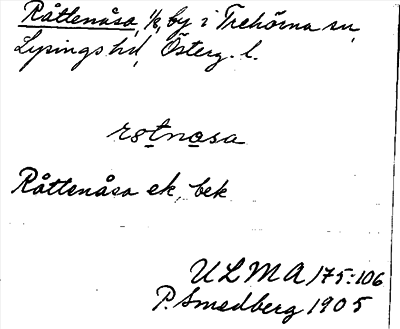 Råttenåsa, 1/2, by i Trehörna sn,
Lysings hd, Österg. l.
rotnosa
Råttenåsa ek, bek
ULMA 175:106
P. Smedberg 1905